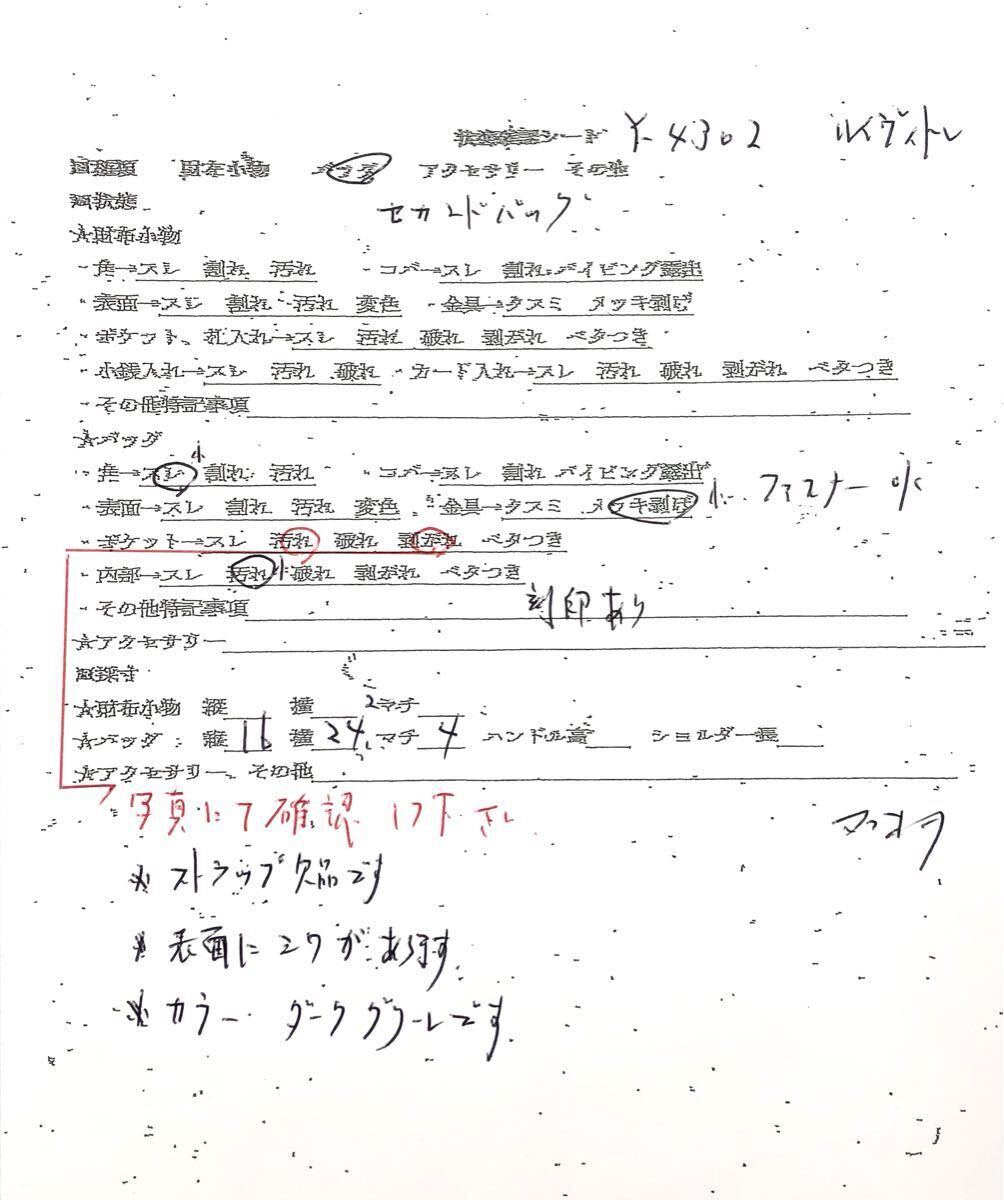 状態確認シート Y-4302 ルイヴィトン
□種類 財布小物 バッグ アクセサリー その他
□状態 セカンドバッグ
☆財布小物
・角→スレ 割れ 汚れ ・コバ→スレ 割れ パイピング露出
・表面→スレ 割れ 汚れ 変色 ・金具→クスミ メッキ剥げ
・ポケット、札入れ→スレ 汚れ 破れ 剥がれ ベタつき
・小銭入れ→スレ 汚れ 破れ ・カード入れ→スレ 汚れ 破れ 剥がれ ベタつき
・その他特記事項
☆バッグ
・角→スレ 小 割れ 汚れ ・コバ→スレ 割れ パイピング露出
・表面→スレ 割れ 汚れ 変色 ・金具→クスミ メッキ剥げ 小 ファスナー
・ポケット→スレ 汚れ 破れ 剥がれ ベタつき
・内部→スレ 汚れ 小 破れ 剥がれ ベタつき
・その他特記事項 刻印あり
☆アクセサリー
□採寸
☆財布小物 縦 横 マチ
☆バッグ 縦 16 横 24 マチ 4 ハンドル高 ショルダー長
☆アクセサリー、その他
写真にて確認 下さい
※ストラップ欠品です
※表面にシワがあります
※カラー ダークグリーンです